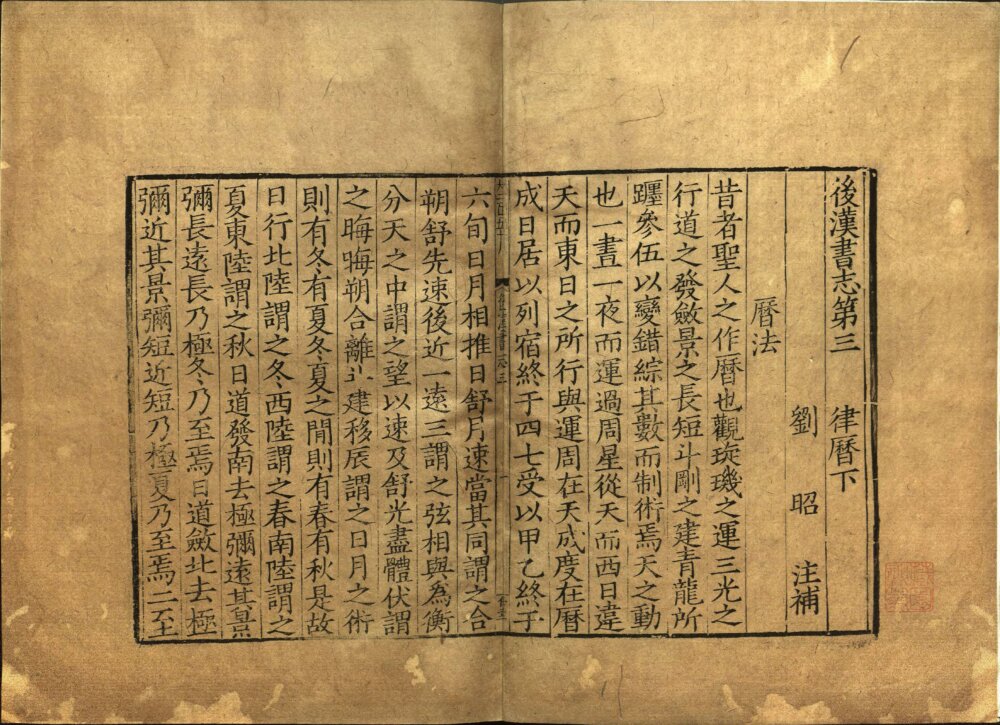 後漢書志第三 律曆下
劉昭 注補
曆法
昔者聖人之作曆也觀琁璣之運三光之
行道之發斂景之長短斗剛之建青龍所
躔參伍以變錯綜其數而制術焉天之動
也一晝一夜而運過周星從天而西日違
天而東日之所行與運周在天成度在曆
成日居以列宿終于四七受以甲乙終于
六旬日月相推日舒月速當其同謂之合
朔舒先速後近一遠三謂之弦相與為衡
分天之中謂之望以速及舒光盡體伏謂
之晦晦朔合離斗建移辰謂之日月之術
則有冬有夏冬夏之閒則有春有秋是故
日行北陸謂之冬西陸謂之春南陸謂之
夏東陸謂之秋日道發南去極彌遠其景
彌長遠長乃極冬乃至焉日道斂北去極
彌近其景彌短近短乃極夏乃至焉二至